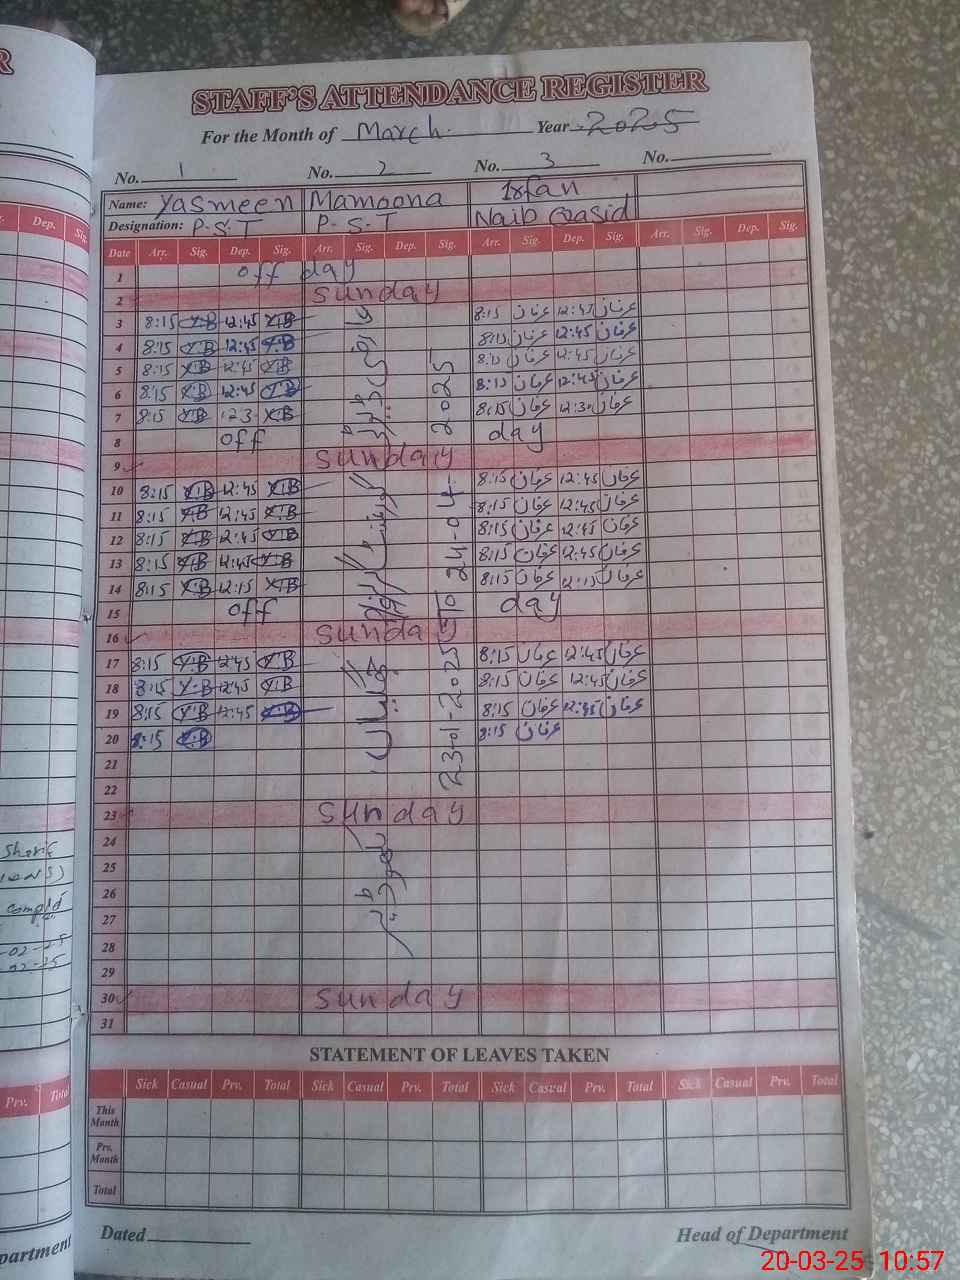 STAFF'S ATTENDANCE REGISTER
For the Month of March Year 2025
No. 1 No. 2 No. 3 No.
Name: Yasmeen Mamoona Irfan
Designation: P.S.T P.S.T Naib Qasid
Date Arr. Sig. Dep. Sig. Arr. Sig. Dep. Sig. Arr. Sig. Dep. Sig. Arr. Sig. Dep. Sig.
1 off day
2 Sunday
3 8:15 Y.B 12:45 Y.B 8:15 عرفان 12:45 عرفان
4 8:15 Y.B 12:45 Y.B 8:15 عرفان 12:45 عرفان
5 8:15 Y.B 12:45 Y.B 8:15 عرفان 12:45 عرفان
6 8:15 Y.B 12:45 Y.B 8:15 عرفان 12:45 عرفان
7 8:15 Y.B 12:3 Y.B 8:15 عرفان 12:30 عرفان
8 off day
9 Sunday
10 8:15 Y.B 12:45 Y.B 8:15 عرفان 12:45 عرفان
11 8:15 Y.B 12:45 Y.B 8:15 عرفان 12:45 عرفان
12 8:15 Y.B 12:45 Y.B 8:15 عرفان 12:45 عرفان
13 8:15 Y.B 12:45 Y.B 8:15 عرفان 12:45 عرفان
14 8:15 Y.B 12:15 Y.B 8:15 عرفان 12:15 عرفان
15 off day
16 Sunday
17 8:15 Y.B 12:45 Y.B 8:15 عرفان 12:45 عرفان
18 8:15 Y.B 12:45 Y.B 8:15 عرفان 12:45 عرفان
19 8:15 Y.B 12:45 Y.B 8:15 عرفان 12:45 عرفان
20 8:15 Y.B 8:15 عرفان
21
22
23 Sunday
24
25
26
27
28
29
30 Sunday
31
23-01-2025 To 24-04-2025
STATEMENT OF LEAVES TAKEN
Sick Casual Prv. Total Sick Casual Prv. Total Sick Casual Prv. Total Sick Casual Prv. Total
This Month
Prv. Month
Total
Dated Head of Department
20-03-25 10:57
R
Dep. Sig.
Sherif
compld
-02-25
02-25
Prv. Total
partment